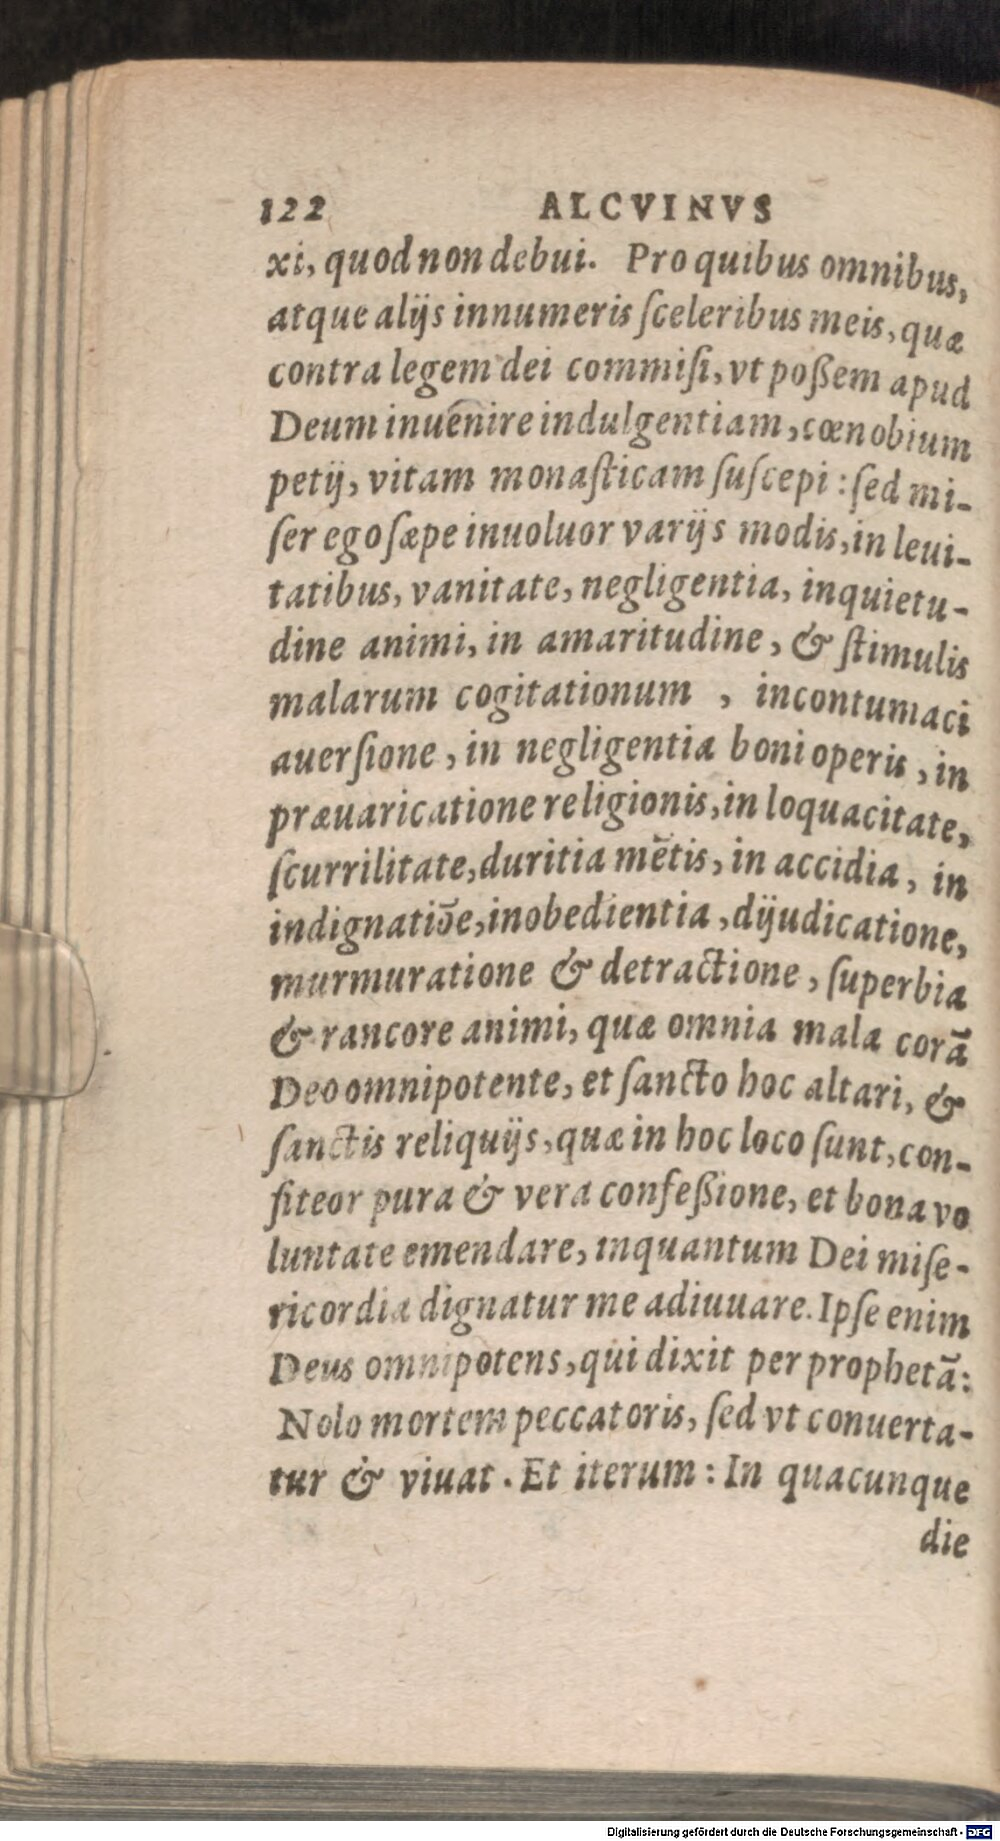 122 ALCVINVS
xi, quod non debui. Pro quibus omnibus,
atque alijs innumeris ſceleribus meis, quæ
contra legem dei commiſi, vt poßem apud
Deum inuenire indulgentiam, cœnobium
petij, vitam monaſticam ſuſcepi: ſed mi-
ſer ego ſæpe inuoluor varijs modis, in leui-
tatibus, vanitate, negligentia, inquietu-
dine animi, in amaritudine, & ſtimulis
malarum cogitationum , incontumaci
auerſione, in negligentia boni operis, in
præuaricatione religionis, in loquacitate,
ſcurrilitate, duritia mẽtis, in accidia, in
indignatiõe, inobedientia, dijudicatione,
murmuratione & detractione, ſuperbia
& rancore animi, quæ omnia mala corã
Deo omnipotente, et ſancto hoc altari, &
ſanctis reliquijs, quæ in hoc loco ſunt, con-
fiteor pura & vera confeßione, et bona vo
luntate emendare, inquantum Dei miſe-
ricordia dignatur me adiuuare. Ipſe enim
Deus omnipotens, qui dixit per prophetã:
Nolo mortem peccatoris, ſed vt conuerta-
tur & viuat. Et iterum: In quacunque
die
Digitalisierung gefördert durch die Deutsche Forschungsgemeinschaft - DFG